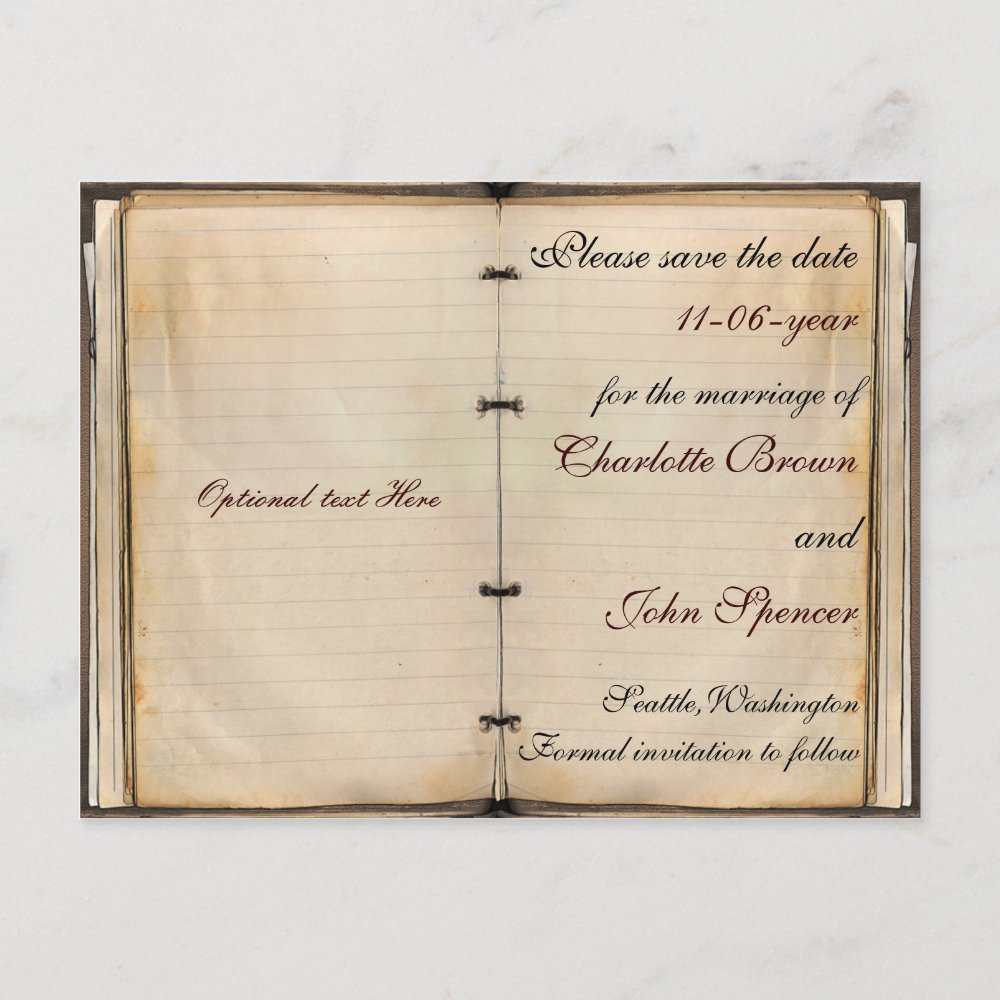 Optional text Here
Please save the date
11-06-year
for the marriage of
Charlotte Brown
and
John Spencer
Seattle,Washington
Formal invitation to follow